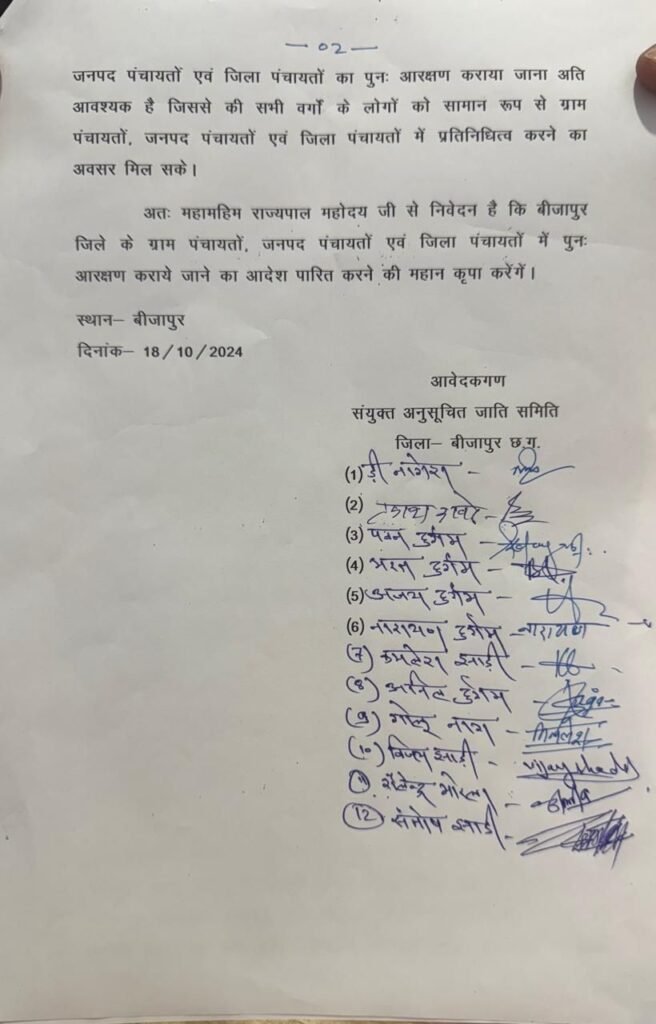 — 02 —
जनपद पंचायतों एवं जिला पंचायतों का पुनः आरक्षण कराया जाना अति
आवश्यक है जिससे की सभी वर्गों के लोगों को सामान रूप से ग्राम
पंचायतों, जनपद पंचायतों एवं जिला पंचायतों में प्रतिनिधित्व करने का
अवसर मिल सके।
अतः महामहिम राज्यपाल महोदय जी से निवेदन है कि बीजापुर
जिले के ग्राम पंचायतों, जनपद पंचायतों एवं जिला पंचायतों में पुनः
आरक्षण कराये जाने का आदेश पारित करने की महान कृपा करेंगें।
स्थान– बीजापुर
दिनांक– 18/10/2024
आवेदकगण
संयुक्त अनुसूचित जाति समिति
जिला– बीजापुर छ.ग.
(1) डी नागेश –
(2)
(3) पवन दुर्गम –
(4) भरत दुर्गम –
(5) अजय दुर्गम –
(6) नारायण दुर्गम – नारायण
(7) कमलेश झाड़ी –
(8) अनिल दुर्गम –
(9) गोलू नाग –
(10) विजय झाड़ी – vijay
(11)
(12) संतोष झाड़ी –